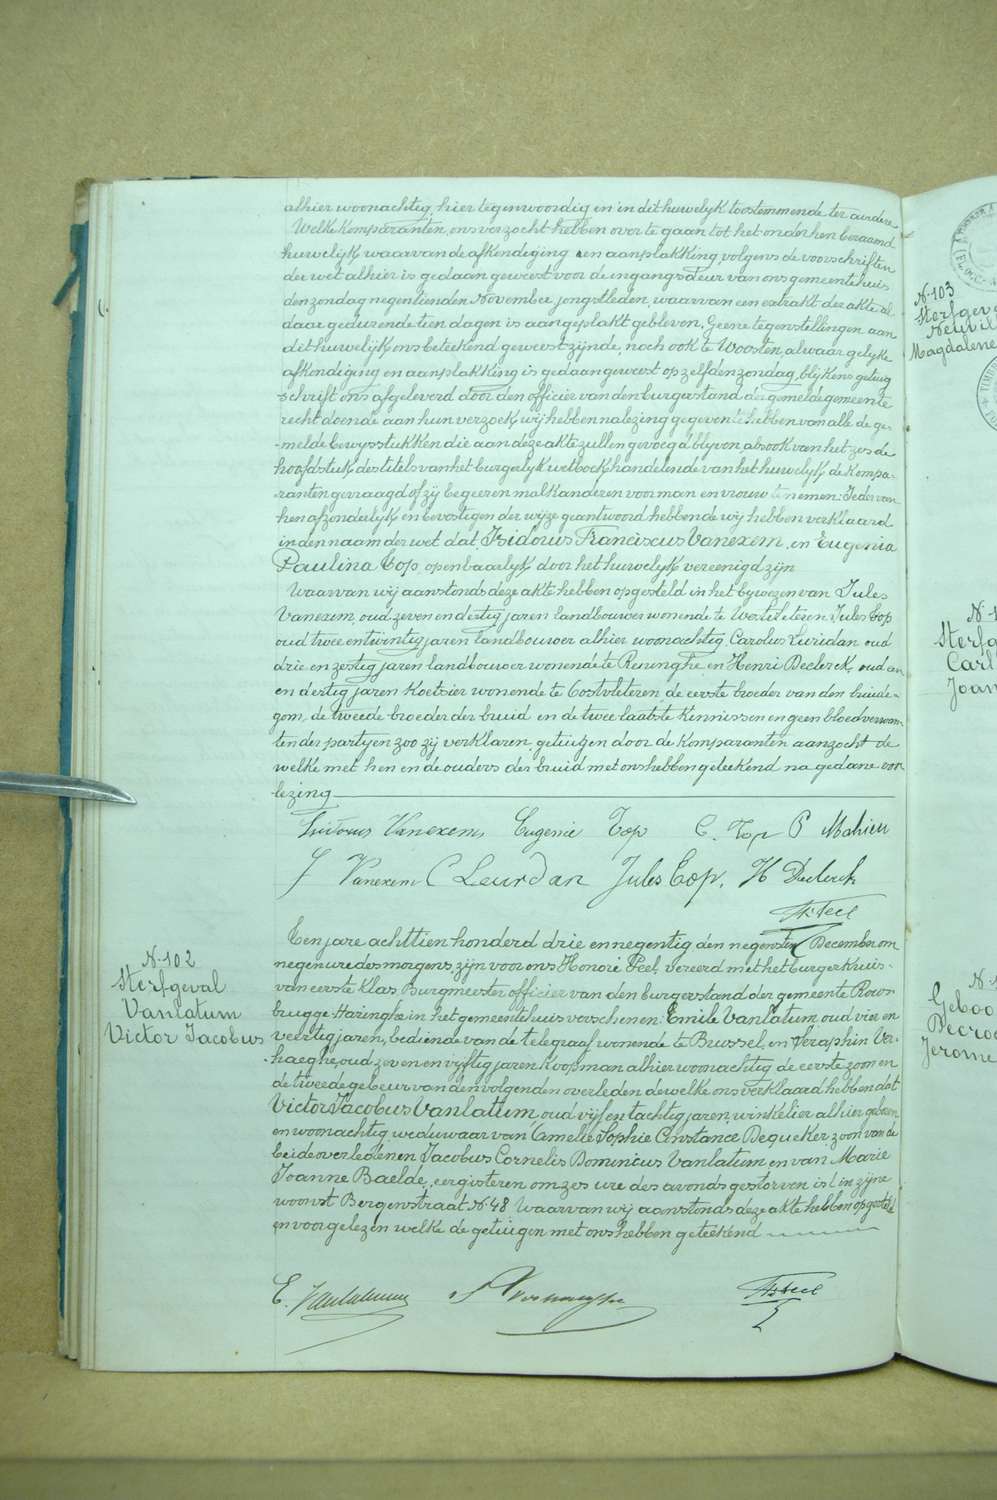 alhier woonachtig, hier tegenwoordig en in dit huwelijk toestemmende ter andere
Welke Komparanten, ons verzocht hebben over te gaan tot het onder hen beraamd
huwelijk waarvan de afkondiging en aanplakking, volgens de voorschriften
der wet alhier is gedaan geweest voor de ingangsdeur van ons gemeentehuis
den zondag negentienden November jongstleden, waarvan een extrakt der akte al
daar gedurende tien dagen is aangeplakt gebleven. Geene tegenstellingen aan
dit huwelijk ons beteekend geweest zijnde, noch ook te Woesten, alwaar gelijke
afkondiging en aanplakking is gedaan geweest op zelfden zondag, blijkens getuig
schrift ons afgeleverd door den officier van den burgerstand der gemelde gemeente
recht doende aan hun verzoek, wij hebben na lezing gegeven te hebben van alle de ge-
-melde bewysstukken die aan deze akte zullen gevoegd blyven, alsook van het zesde
hoofdstuk des titels van het burgerlijk wetboek handelende van het huwelyk, de Kompa-
ranten gevraagd of zij begeeren malkanderen voor man en vrouw te nemen: Ieder van
hen afzonderlijk en bevestigender wijze geantwoord hebbende wij hebben verklaard
in den naam der wet dat, Isidorus Franciscus Vanexem, en Eugenia
Paulina Cop, openbaarlijk door het huwelijk vereenigd zijn
Waarvan wij aanstonds deze akte hebben opgesteld in het bywezen van Jules
Vanexem, oud zeven en dertig jaren landbouwer wonende te Westvleteren, Jules Cop
oud twee en twintig jaren landbouwer alhier woonachtig, Carolus Leuridan oud
drie en zestig jaren landbouwer wonende te Reninghe, en Henri Declerck, oud een
en dertig jaren Koetsier wonende te Oostvleteren, de eerste broeder van den bruide-
gom, de tweede broeder der bruid en de twee laatste Kennissen en geen bloedverwan-
ten der partyen zoo zij verklaren, getuigen door de Komparanten aanzocht de
welke met hen en de ouders der bruid met ons hebben geteekend na gedane voor
lezing
Isidorus Vanexem Eugenie Cop C. Cop P Mahieu
J Vanexem C Leurdan Jules Cop. H Declerck
H. Peel
N. 102
Sterfgeval
Vanlatum
Victor Jacobus
Een jare achttien honderd drie en negentig den negensten December om
negen ure des morgens, zijn voor ons Honoré Peel, vereerd met het burger Kruis-
van eerste Klas Burgmeester officier van den burgerstand der gemeente Rous-
brugge-Haringhe in het gemeentehuis verschenen: Emile Vanlatum, oud vier en
veertig jaren, bediende van de telegraaf wonende te Brussel, en Seraphin Ver-
-haeghe, oud zeven en vyftig jaren Koopman alhier woonachtig de eerste zoon en
de tweede gebeur van den volgenden overleden dewelke ons verklaard hebben dat
Victor Jacobus Vanlatum, oud vijf en tachtig jaren, winkelier alhier geboren
en woonachtig weduwaar van Amelie Sophie Constance Dequeker, zoon van de
beide overledenen Jacobus Cornelis Dominicus Vanlatum en van Marie
Joanne Baelde, eergisteren om zes ure des avonds gestorven is in zijne
woonst Bergenstraat N. 48 Waarvan wij aanstonds deze akte hebben opgesteld
en voorgelezen welke de getuigen met ons hebben geteekend
E. Vanlatum S Verhaeghe H. Peel
N. 103
Sterfgeval
Magdalene
Sterfg
Carl
Joan
Geboo
Decroc
Jerome